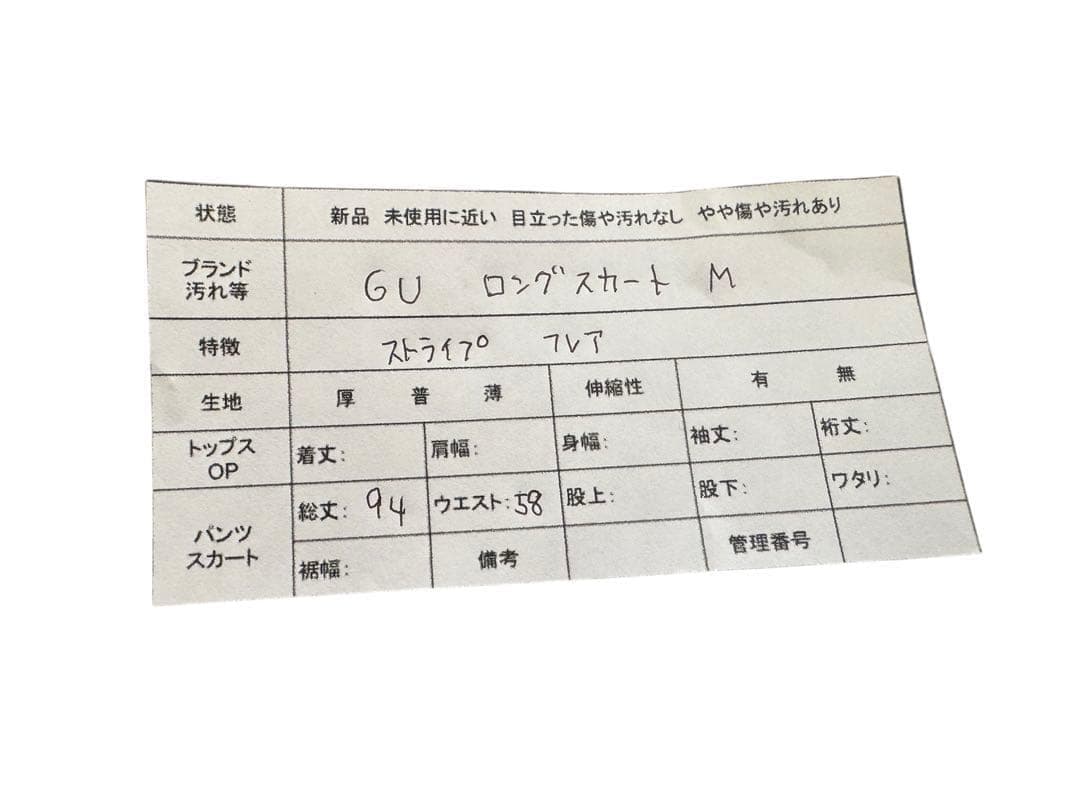 状態 新品 未使用に近い 目立った傷や汚れなし やや傷や汚れあり
ブランド
汚れ等 GU ロングスカート M
特徴 ストライプ フレア
生地 厚 普 薄 伸縮性 有 無
トップス
OP 着丈: 肩幅: 身幅: 袖丈: 裄丈:
パンツ
スカート 総丈: 94 ウエスト: 58 股上: 股下: ワタリ:
裾幅: 備考 管理番号